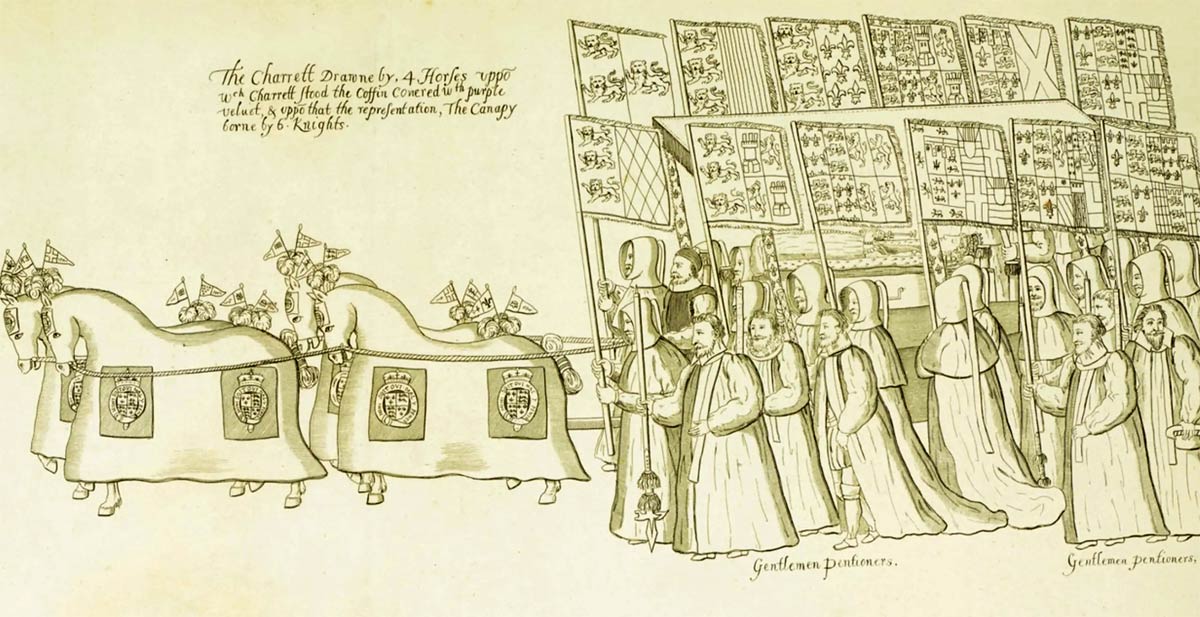 The Charrett Drawne by. 4 Horses uppō
wch Charrett stood the Coffin Couered wth purple
veluet, & uppō that the representation, The Canapy
borne by 6. Knights.
Gentlemen pentioners.
Gentlemen pentioners,